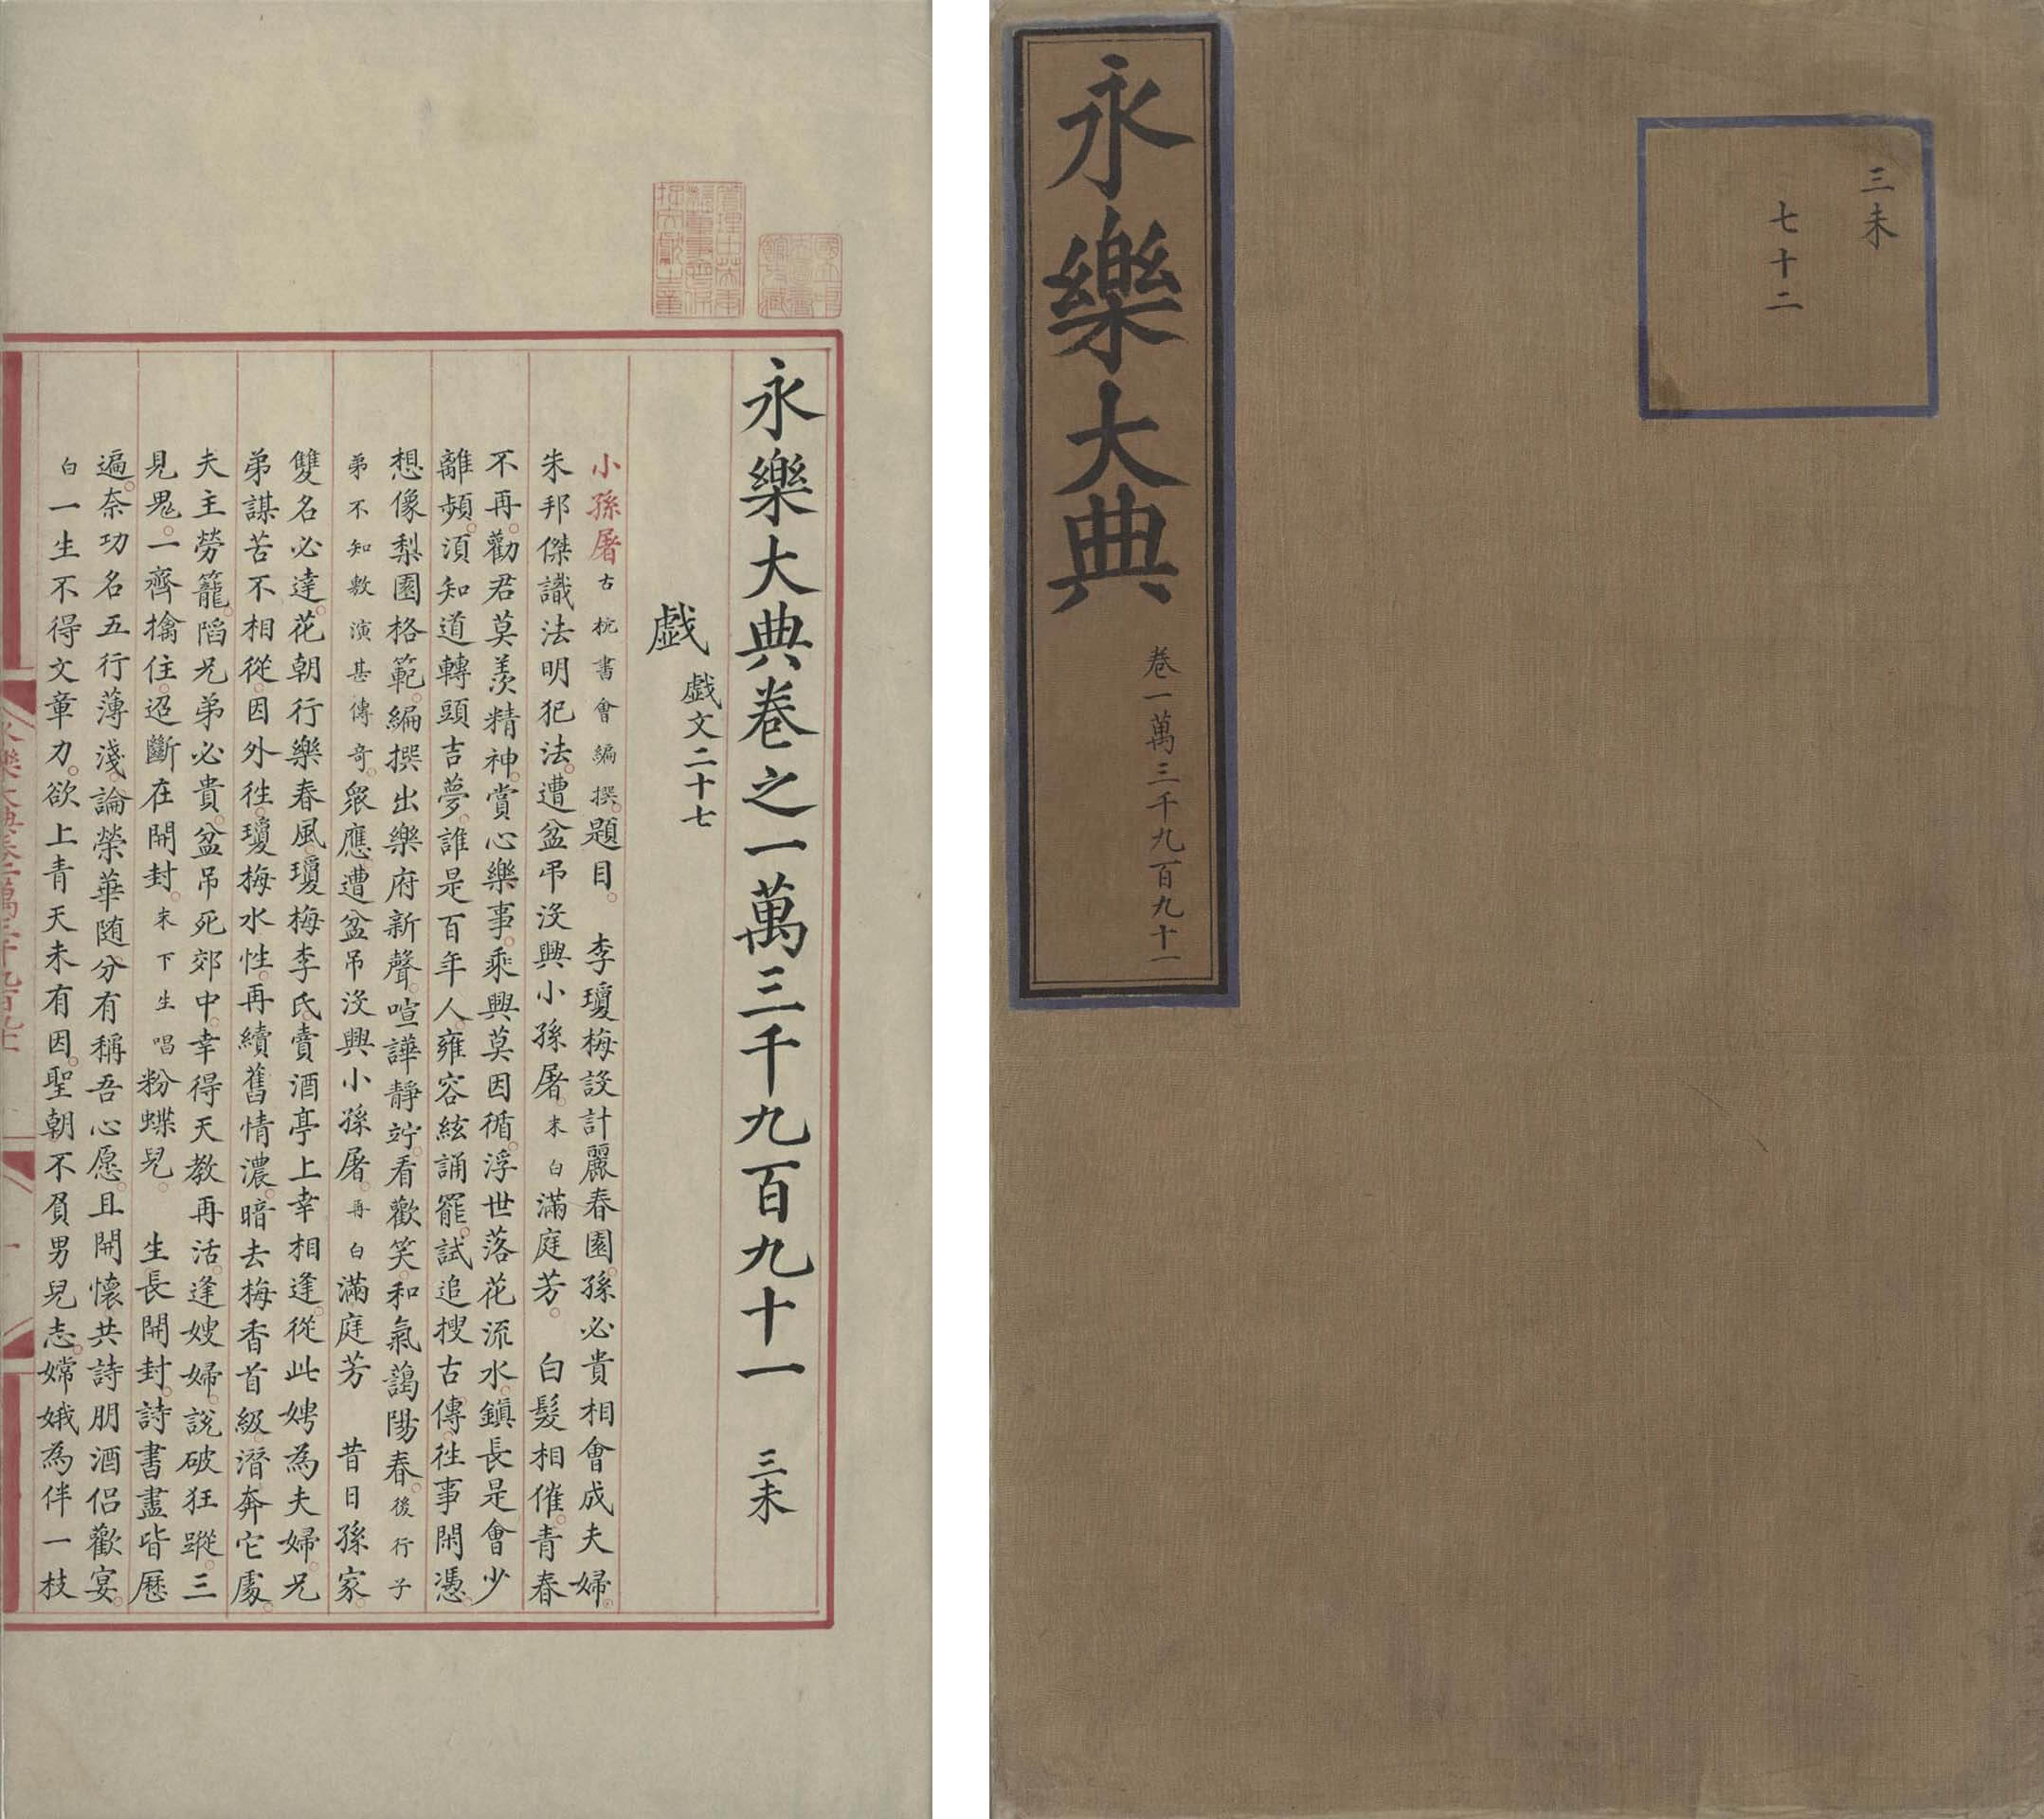 三未
七十二
永樂大典 卷一萬三千九百九十一
國立中央圖書館考藏
管理中英庚款董事會保存文獻之章
永樂大典卷之一萬三千九百九十一 三未
戯 戯文二十七
小孫屠古杭書會編撰。題目。 李瓊梅設計麗春園。孫必貴相會成夫婦。
朱邦傑識法明犯法。遭盆弔沒興小孫屠。末白滿庭芳。 白髮相催。青春
不再。勸君莫羨精神。賞心樂事。乘興莫因循。浮世落花流水。鎮長是會少
離頻。須知道轉頭吉夢。誰是百年人。雍容絃誦罷。試追搜古傳。徃事閑憑。
想像梨園格範。編撰出樂府新聲。喧譁靜竚。看歡笑。和氣藹陽春。後行子
弟不知敷演甚傳奇。衆應。遭盆吊沒興小孫屠。再白滿庭芳 昔日孫家。
雙名必達。花朝行樂春風。瓊梅李氏。賣酒亭上幸相逢。從此娉為夫婦。兄
弟謀苦不相從。因外徃。瓊梅水性。再續舊情濃。暗去梅香首級。潛奔它處。
夫主勞籠。陷兄弟必貴。盆吊死郊中。幸得天教再活。逢嫂婦。說破狂蹤。三
見鬼。一齊擒住。迢斷在開封。末下生唱粉蝶兒。 生長開封。詩書盡皆歷
遍。奈功名五行薄淺。論榮華随分有稱吾心愿。且開懷共詩朋酒侣歡宴。
白一生不得文章力。欲上青天未有因。聖朝不負男兒志。嫦娥為伴一枝